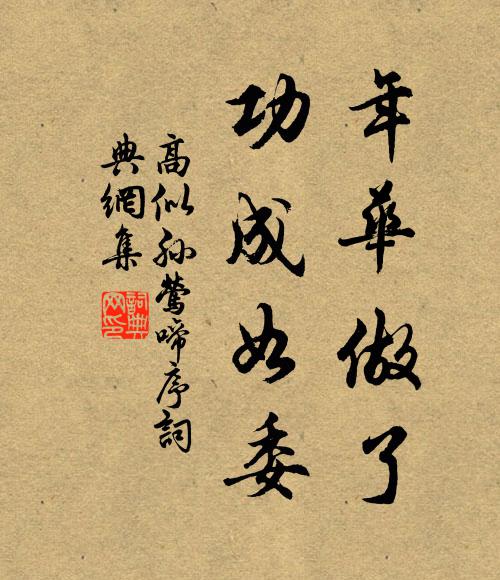 年華做了
功成如委
高似孫鶯啼序詞
典網集
詞典网印